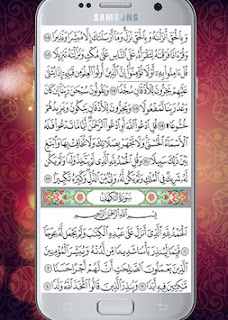 SAMSUNG
وَبِالْحَقِّ أَنزَلْنَاهُ وَبِالْحَقِّ نَزَلَ وَمَا أَرْسَلْنَاكَ إِلَّا مُبَشِّرًا وَنَذِيرًا ١٠٥
وَقُرْءَانًا فَرَقْنَاهُ لِتَقْرَأَهُ عَلَى النَّاسِ عَلَى مُكْثٍ وَنَزَّلْنَاهُ تَنزِيلًا ١٠٦
قُلْ ءَامِنُوا بِهِ أَوْ لَا تُؤْمِنُوا إِنَّ الَّذِينَ أُوتُوا الْعِلْمَ مِن قَبْلِهِ إِذَا
يُتْلَى عَلَيْهِمْ يَخِرُّونَ لِلْأَذْقَانِ سُجَّدًا ١٠٧ وَيَقُولُونَ سُبْحَانَ رَبِّنَا إِن
كَانَ وَعْدُ رَبِّنَا لَمَفْعُولًا ١٠٨ وَيَخِرُّونَ لِلْأَذْقَانِ يَبْكُونَ وَيَزِيدُهُمْ
خُشُوعًا ۩ ١٠٩ قُلِ ادْعُوا اللَّهَ أَوِ ادْعُوا الرَّحْمَٰنَ أَيًّا مَّا تَدْعُوا فَلَهُ
الْأَسْمَاءُ الْحُسْنَى وَلَا تَجْهَرْ بِصَلَاتِكَ وَلَا تُخَافِتْ بِهَا وَابْتَغِ
بَيْنَ ذَٰلِكَ سَبِيلًا ١١٠ وَقُلِ الْحَمْدُ لِلَّهِ الَّذِي لَمْ يَتَّخِذْ وَلَدًا وَلَمْ يَكُن
لَّهُ شَرِيكٌ فِي الْمُلْكِ وَلَمْ يَكُن لَّهُ وَلِيٌّ مِّنَ الذُّلِّ وَكَبِّرْهُ تَكْبِيرًا ١١١
سُورَةُ الْكَهْفِ
بِسْمِ اللَّهِ الرَّحْمَٰنِ الرَّحِيمِ
الْحَمْدُ لِلَّهِ الَّذِي أَنزَلَ عَلَى عَبْدِهِ الْكِتَابَ وَلَمْ يَجْعَل لَّهُ عِوَجًا ١
قَيِّمًا لِّيُنذِرَ بَأْسًا شَدِيدًا مِّن لَّدُنْهُ وَيُبَشِّرَ الْمُؤْمِنِينَ
الَّذِينَ يَعْمَلُونَ الصَّالِحَاتِ أَنَّ لَهُمْ أَجْرًا حَسَنًا ٢
مَّاكِثِينَ فِيهِ أَبَدًا ٣ وَيُنذِرَ الَّذِينَ قَالُوا اتَّخَذَ اللَّهُ وَلَدًا ٤